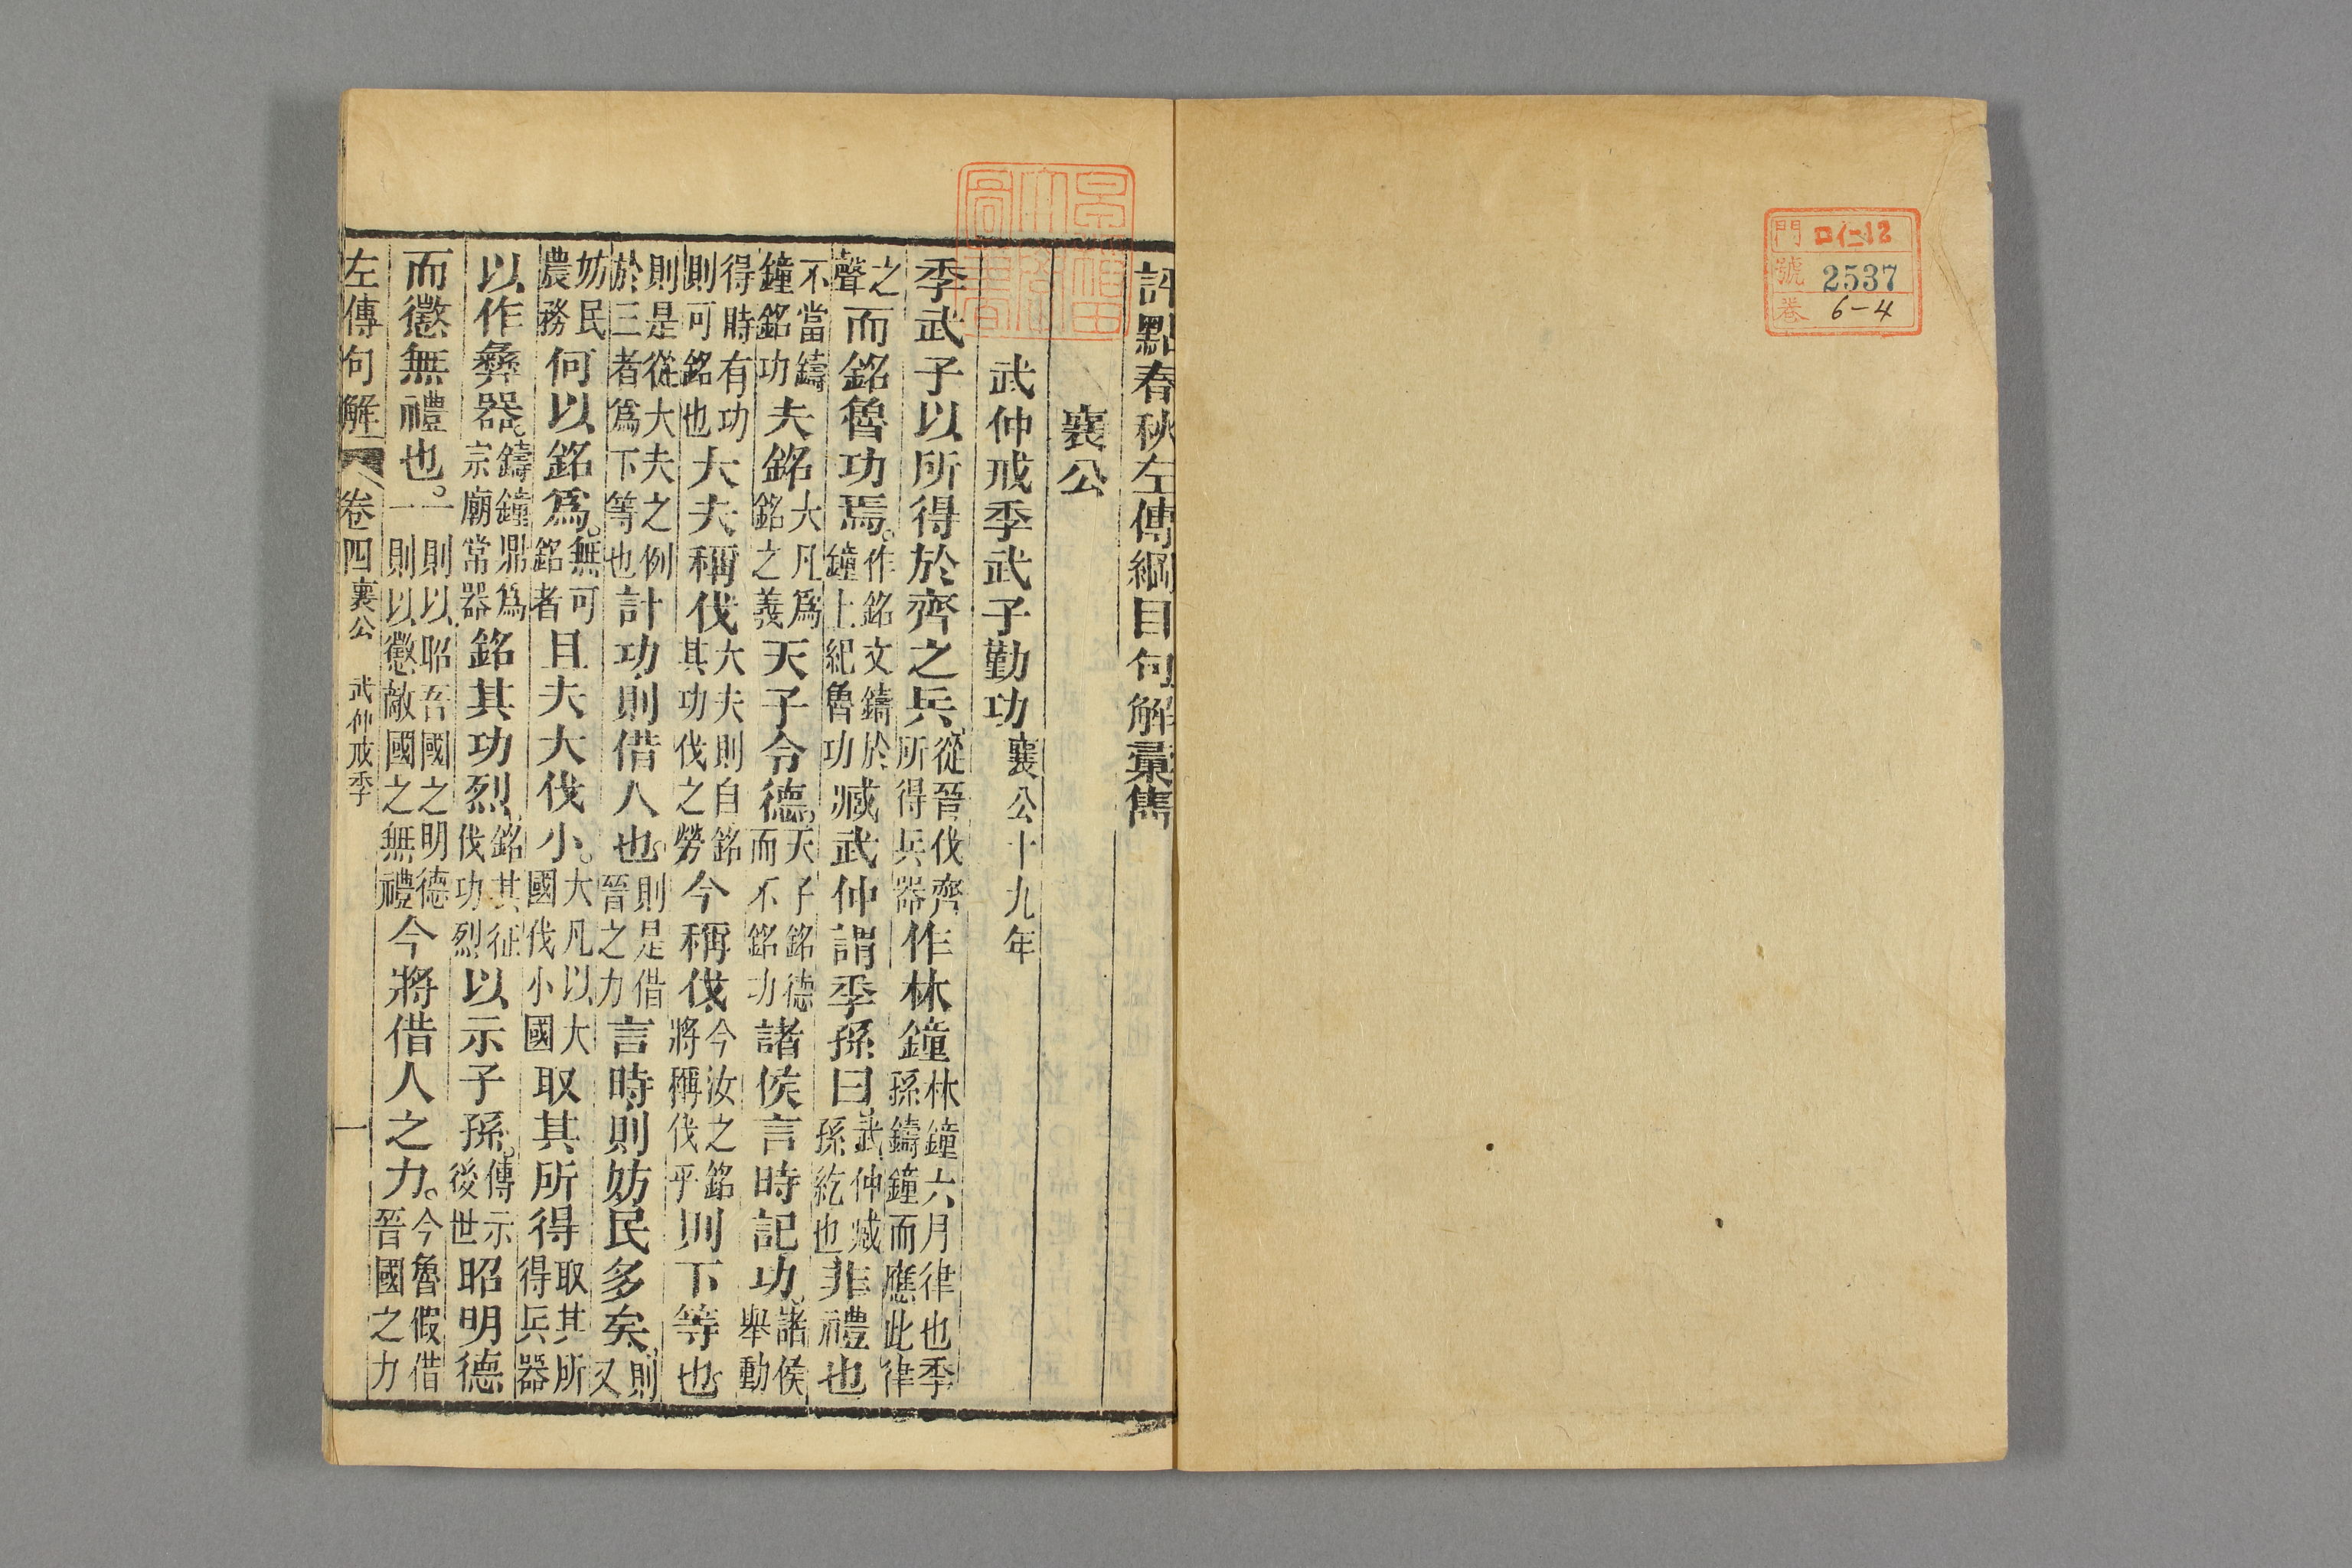 門 口仁12
號 2537
卷 6-4
評點春秋左傳綱目句解彙雋
襄公
武仲戒季武子勤功 襄公十九年
季武子以所得於齊之兵從晉伐齊所得兵器作林鐘林鐘六月律也季孫鑄鐘而應此律
之聲而銘魯功焉作銘文鑄於鐘上紀魯功臧武仲謂季孫曰武仲臧孫紇也非禮也
不當鑄鐘銘功夫銘大凡爲銘之義天子令德天子銘德而不銘功諸侯言時記功諸侯舉動
得時有功則可銘也大夫稱伐大夫則自銘其功伐之勞今稱伐今汝之銘將稱伐乎則下等也
則是從大夫之例於三者爲下等也計功則借人也則是借晉之力言時則妨民多矣則又
妨民農務何以銘爲無可銘者且夫大伐小大凡以大國伐小國取其所得取其所得兵器
以作彝器鑄鐘鼎爲宗廟常器銘其功烈銘其征伐功烈以示子孫傳示後世昭明德
而懲無禮也一則以昭吾國之明德一則以懲敵國之無禮今將借人之力今魯假借晉國之力
左傳句解 卷四 襄公 武仲戒季 一